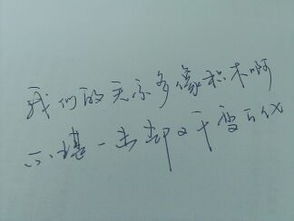 我们的关系多像积木啊
不堪一击却又千变万化